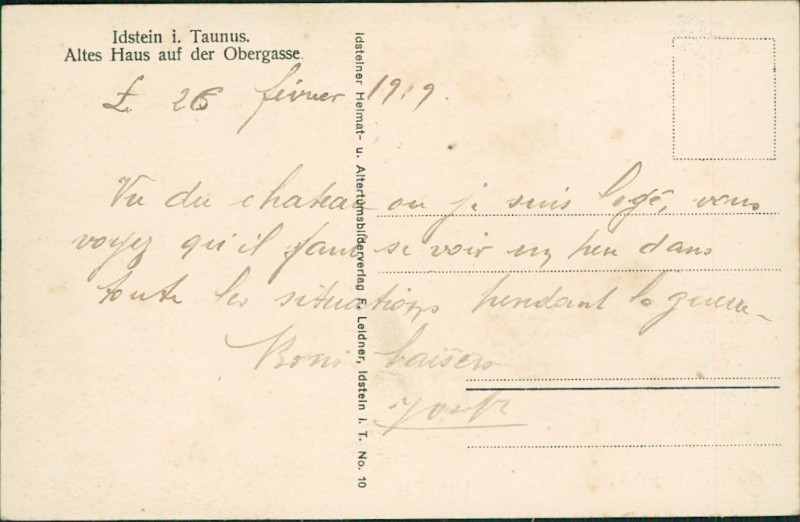 Idstein i. Taunus.
Altes Haus auf der Obergasse.
£ 26 février 1919.
Vu du chateau ou je suis logé, vous
voyez qu'il faut se voir un peu dans
toute les situations pendant la guerre
Bons baisers
Idsteiner Heimat- u. Altertumsbilderverlag F. Leidner, Idstein i. T. No. 10